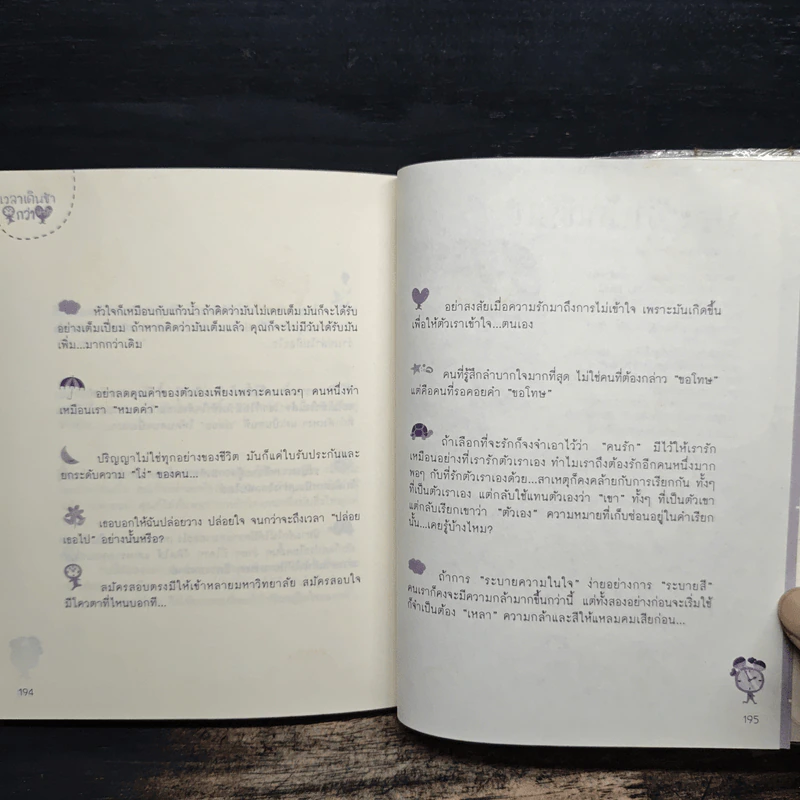 เวลาเดินช้า
กว่า
หัวใจก็เหมือนกับแก้วน้ำ ถ้าคิดว่ามันไม่เคยเต็ม มันก็จะได้รับ
อย่างเต็มเปี่ยม ถ้าหากคิดว่ามันเต็มแล้ว คุณก็จะไม่มีวันได้รับมัน
เพิ่ม...มากกว่าเดิม
อย่าลดคุณค่าของตัวเองเพียงเพราะคนเลวๆ คนหนึ่งทำ
เหมือนเรา "หมดค่า"
ปริญญาไม่ใช่ทุกอย่างของชีวิต มันก็แค่ใบรับประกันและ
ยกระดับความ "โง่" ของคน...
เธอบอกให้ฉันปล่อยวาง ปล่อยใจ จนกว่าจะถึงเวลา "ปล่อย
เธอไป" อย่างนั้นหรือ?
สมัครสอบตรงมีให้เข้าหลายมหาวิทยาลัย สมัครสอบใจ
มีโควตาที่ไหนบอกที...
194
อย่าสงสัยเมื่อความรักมาถึงการไม่เข้าใจ เพราะมันเกิดขึ้น
เพื่อให้ตัวเราเข้าใจ...ตนเอง
คนที่รู้สึกลำบากใจมากที่สุด ไม่ใช่คนที่ต้องกล่าว "ขอโทษ"
แต่คือคนที่รอคอยคำ "ขอโทษ"
ถ้าเลือกที่จะรักก็จงจำเอาไว้ว่า "คนรัก" มีไว้ให้เรารัก
เหมือนอย่างที่เรารักตัวเราเอง ทำไมเราถึงต้องรักอีกคนหนึ่งมาก
พอๆ กับที่รักตัวเราเองด้วย...สาเหตุก็คงคล้ายกับการเรียกกัน ทั้งๆ
ที่เป็นตัวเราเอง แต่กลับใช้แทนตัวเองว่า "เขา" ทั้งๆ ที่เป็นตัวเขา
แต่กลับเรียกเขาว่า "ตัวเอง" ความหมายที่เก็บซ่อนอยู่ในคำเรียก
นั้น...เคยรู้บ้างไหม?
ถ้าการ "ระบายความในใจ" ง่ายอย่างการ "ระบายสี"
คนเราก็คงจะมีความกล้ามากขึ้นกว่านี้ แต่ทั้งสองอย่างก่อนจะเริ่มใช้
ก็จำเป็นต้อง "เหลา" ความกล้าและสีให้แหลมคมเสียก่อน...
195